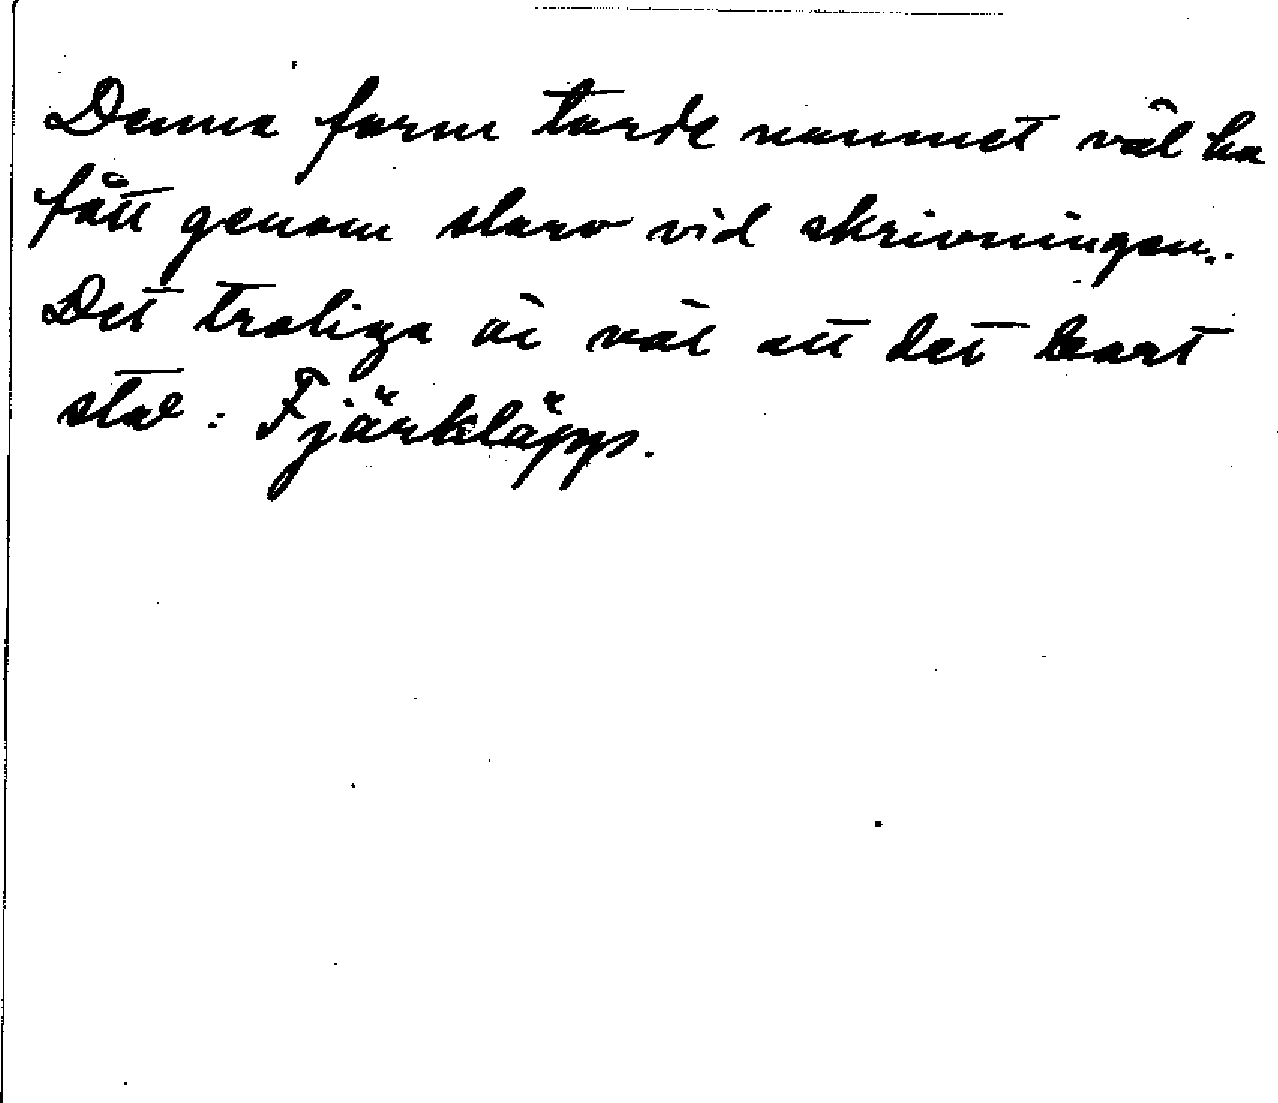 Denna form torde namnet väl ha
fått genom slarv vid skrivningen.
Det troliga är väl att det bort
stå: Fjärkläpp.